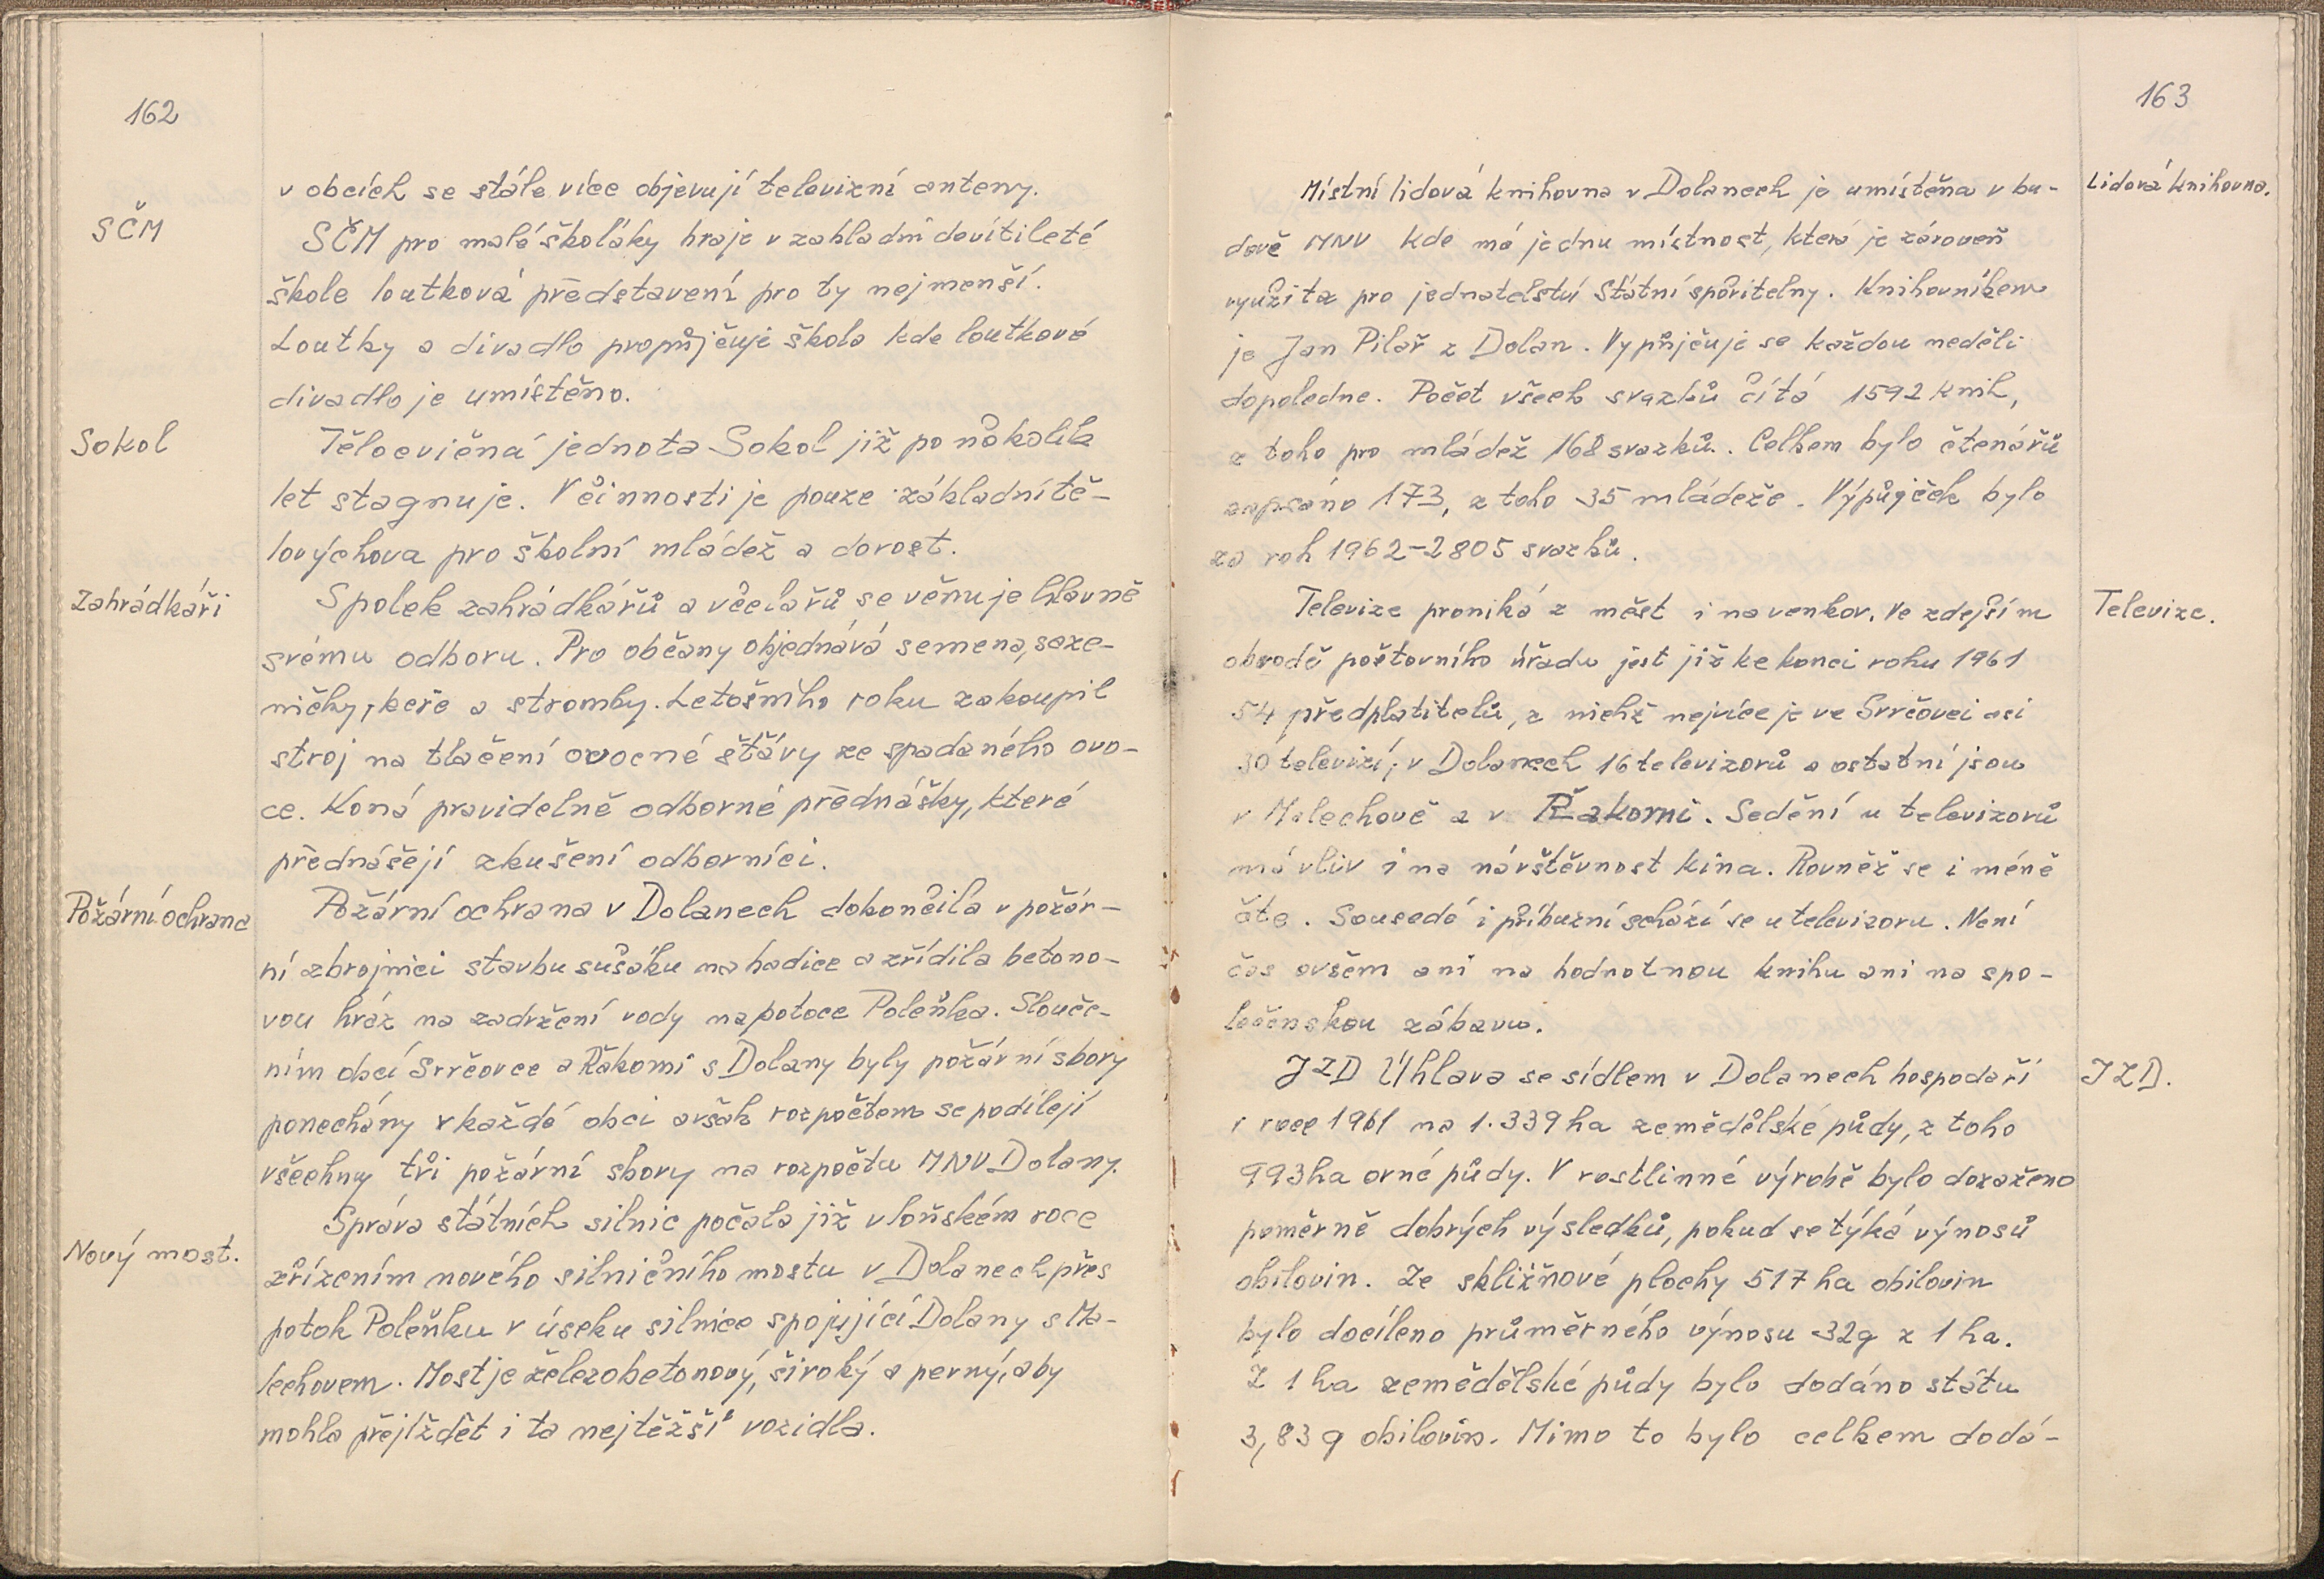 162
v obcích se stále více objevují televizní anteny.
SČM
SČM pro malé školáky hraje v základní devítileté
škole loutková představení pro ty nejmenší.
Loutky a divadlo propůjčuje škola kde loutkové
divadlo je umístěno.
Sokol
Tělocvičná jednota Sokol již po několik
let stagnuje. V činnosti je pouze základní tě-
lovýchova pro školní mládež a dorost.
Zahrádkáři
Spolek zahrádkářů a včelařů se věnuje hlavně
svému odboru. Pro občany objednává semena, saze-
ničky, keře a stromky. Letošního roku zakoupil
stroj na tlačení ovocné šťávy ze spadaného ovo-
ce. Koná pravidelně odborné přednášky, které
přednášejí zkušení odborníci.
Požární ochrana
Požární ochrana v Dolanech dokončila v požár-
ní zbrojnici stavbu sušáku na hadice a zřídila betono-
vou hráz na zadržení vody na potoce Poleňka. Slouče-
ním obcí Svrčovce a Řakomi s Dolany byly požární sbory
ponechány v každé obci avšak rozpočtem se podílejí
všechny tři požární sbory na rozpočtu MNV Dolany.
Nový most.
Správa státních silnic počala již v loňském roce
zřízením nového silničního mostu v Dolanech přes
potok Poleňku v úseku silnice spojující Dolany s Ma-
lechovem. Most je železobetonový, široký a pevný, aby
mohla přejíždět i ta nejtěžší vozidla.
163
Místní lidová knihovna v Dolanech je umístěna v bu-
Lidová knihovna.
dově MNV kde má jednu místnost, která je zároveň
využita pro jednatelství Státní spořitelny. Knihovníkem
je Jan Pilař z Dolan. Vypůjčuje se každou neděli
dopoledne. Počet všech svazků čítá 1592 knih,
z toho pro mládež 168 svazků. Celkem bylo čtenářů
zapsáno 173, z toho 35 mládeže. Výpůjček bylo
za rok 1962-2805 svazků.
Televize proniká z měst i na venkov. Ve zdejším
Televize.
obvodě poštovního úřadu jest již ke konci roku 1961
54 předplatitelů, z nichž nejvíce je ve Svrčovci asi
30 televizí, v Dolanech 16 televizorů a ostatní jsou
v Malechově a v Řakomi. Sedění u televizorů
má vliv i na návštěvnost kina. Rovněž se i méně
čte. Sousedé i příbuzní schází se u televizoru. Není
čas ovšem ani na hodnotnou knihu ani na spo-
lečenskou zábavu.
JZD Úhlava se sídlem v Dolanech hospodaří
JZD.
v roce 1961 na 1.339 ha zemědělské půdy, z toho
993 ha orné půdy. V rostlinné výrobě bylo dosaženo
poměrně dobrých výsledků, pokud se týká výnosů
obilovin. Ze sklizňové plochy 517 ha obilovin
bylo docíleno průměrného výnosu 32q z 1 ha.
Z 1 ha zemědělské půdy bylo dodáno státu
3,83 q obilovin. Mimo to bylo celkem dodá-